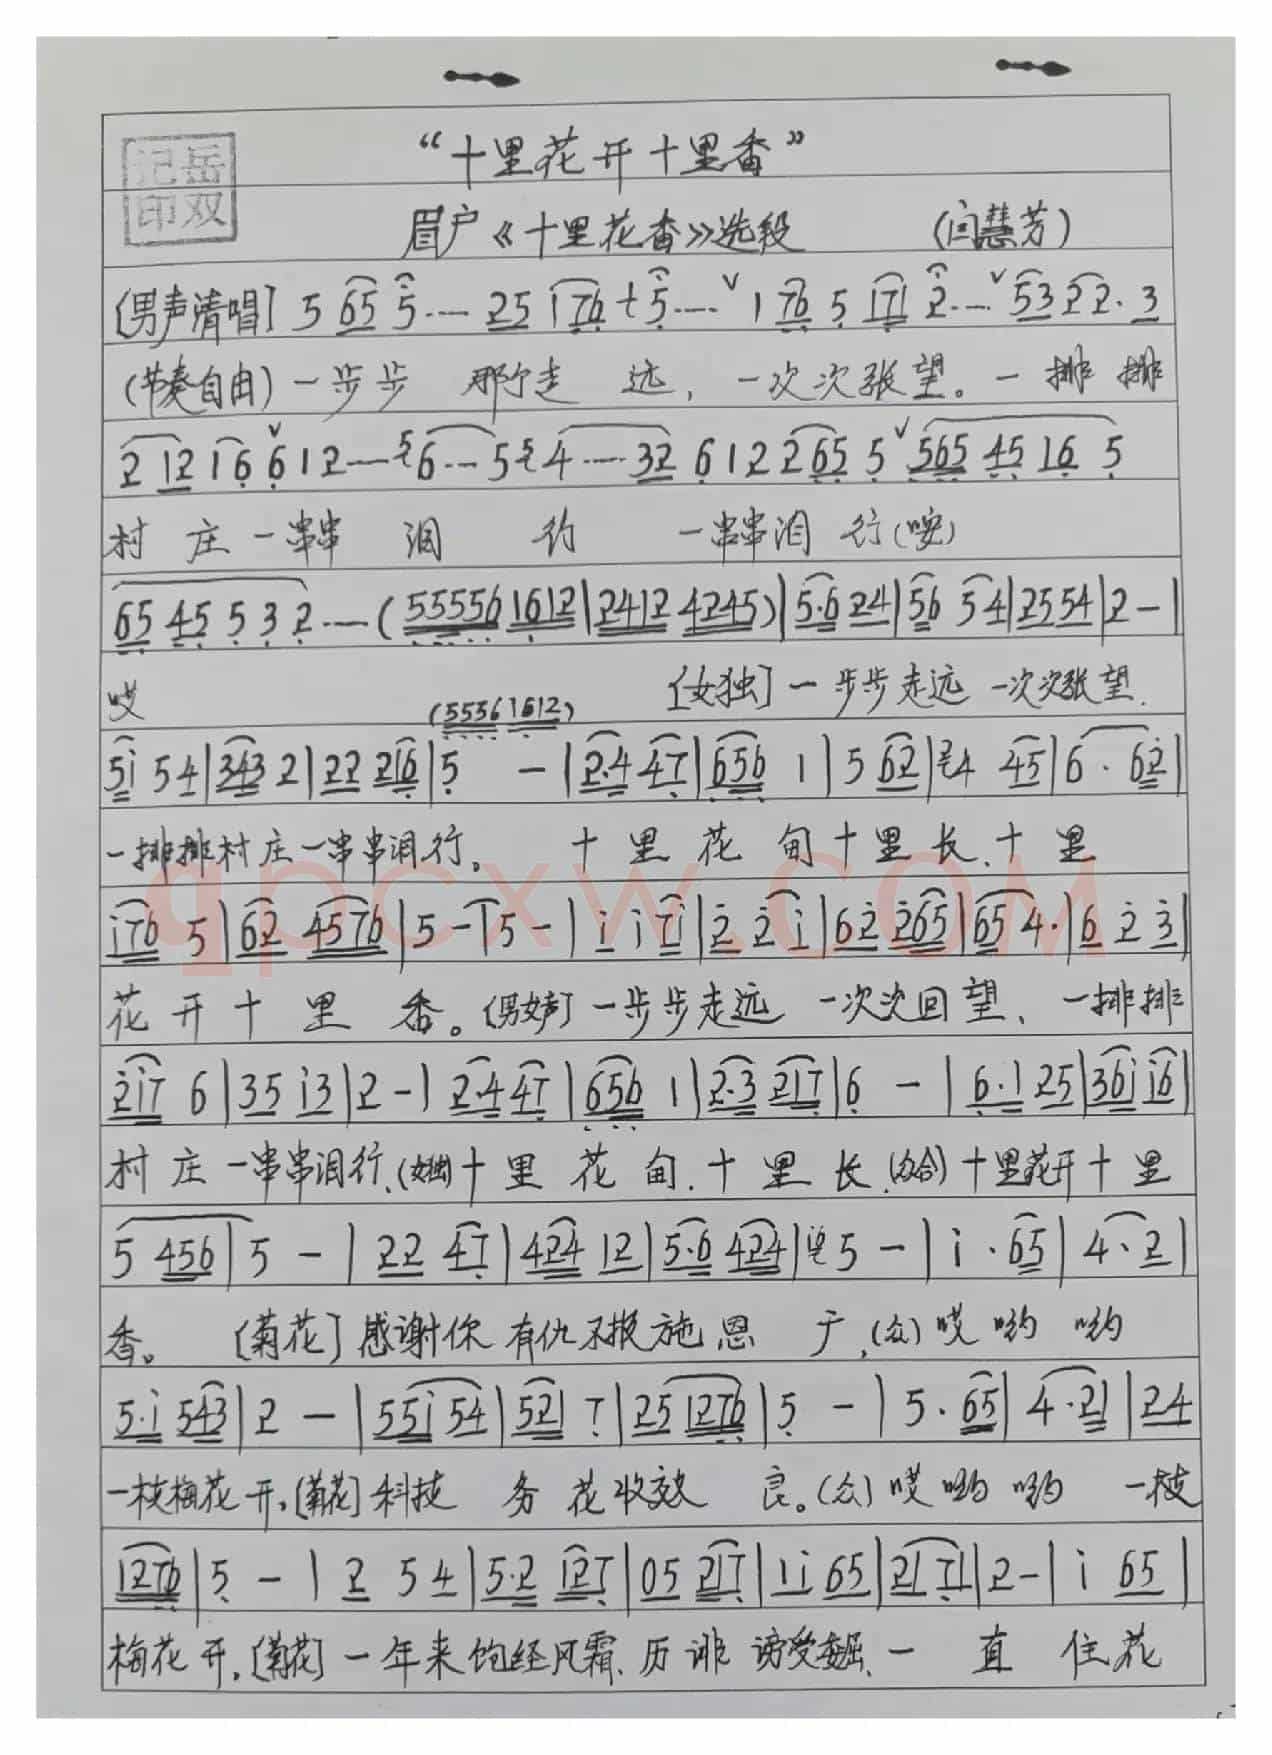 “十里花开十里香”
岳双记印
眉户《十里花香》选段 (闫慧芳)
[男声清唱] 5 65 5---- 25 176 + 5---- ∨ 1 76 5 171 2---- ∨ 53 22. 3
(节奏自由) 一步步 那个走 远, 一次次张望。一 排 排
2 12 16 ∨ 6 12---- 6--- 5 4---- 32 6 12 2 65 5 ∨ 565 45 16 5
村 庄 一串串 泪 行 一串串泪 行(哎)
65 45 5 3 2---- (55556 1612|2412 4245)|5·6 24|56 54|2554|2-|
哎 [女独] 一步步走远 一次次张望.
(5556 1612)
5i 54|343 2|22 216|5 -|2·4 47|656 1|5 62|4 45|6· 62|
一排排村庄一串串泪行。 十里花甸十里长,十里
i76 5|62 4576|5-|5-|i i 7i|2 2 i|62 265|65 4·|6 2 3|
花开十里香。[男女声] 一步步走远 一次次回望、一排排
2i7 6|35 i3|2-|2·4 47|656 1|2·3 217|6 -|6·1 25|36i i6|
村庄一串串泪行、(女独)十里花甸、十里长、(力合)十里花开十里
5 456|5 -|22 47|424 12|5·6 424|5 -|i·65|4·2|
香。 [菊花] 感谢你 有仇不报施恩 于,(众) 哎哟 哟
5·i 543|2 -|55i 54|521 7|25 1276|5 -|5·65|4·21|24
一枝梅花开,[菊花] 科技 务花收效 良。(众) 哎哟 哟 一枝
1276|5 -|2 54|5·2 127|05 217|1i 65|21 71|2-|i 65|
梅花开,[菊花] 一年来饱经风霜、历诽谤受委屈、一直 住花
qpcxw.com